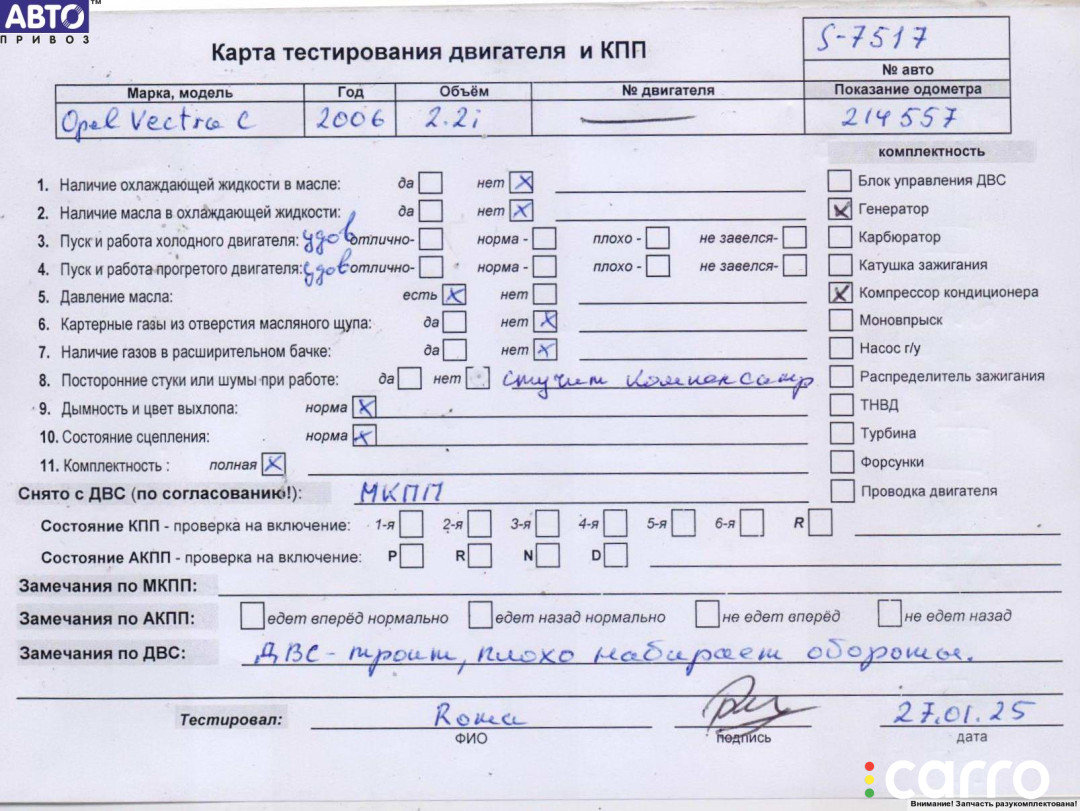 АВТО ™
ПРИВОЗ
Карта тестирования двигателя и КПП
S-7517
№ авто
Марка, модель Год Объём № двигателя Показание одометра
Opel Vectra C 2006 2.2i — 214557
комплектность
1. Наличие охлаждающей жидкости в масле: да нет X
Блок управления ДВС
2. Наличие масла в охлаждающей жидкости: да нет X
Генератор X
3. Пуск и работа холодного двигателя: удов отлично- норма - плохо - не завелся-
Карбюратор
4. Пуск и работа прогретого двигателя: удов отлично- норма - плохо - не завелся-
Катушка зажигания
5. Давление масла: есть X нет
Компрессор кондиционера X
6. Картерные газы из отверстия масляного щупа: да нет X
Моновпрыск
7. Наличие газов в расширительном бачке: да нет X
Насос г/у
8. Посторонние стуки или шумы при работе: да нет стучит компенсатр
Распределитель зажигания
9. Дымность и цвет выхлопа: норма X
ТНВД
10. Состояние сцепления: норма X
Турбина
11. Комплектность : полная X
Форсунки
Снято с ДВС (по согласованию!): МКПП
Проводка двигателя
Состояние КПП - проверка на включение: 1-я 2-я 3-я 4-я 5-я 6-я R
Состояние АКПП - проверка на включение: P R N D
Замечания по МКПП:
Замечания по АКПП: едет вперёд нормально едет назад нормально не едет вперёд не едет назад
Замечания по ДВС: ДВС - троит, плохо набирает обороты.
Тестировал: Roma 27.01.25
ФИО подпись дата
carro
Внимание! Запчасть разукомплектована!